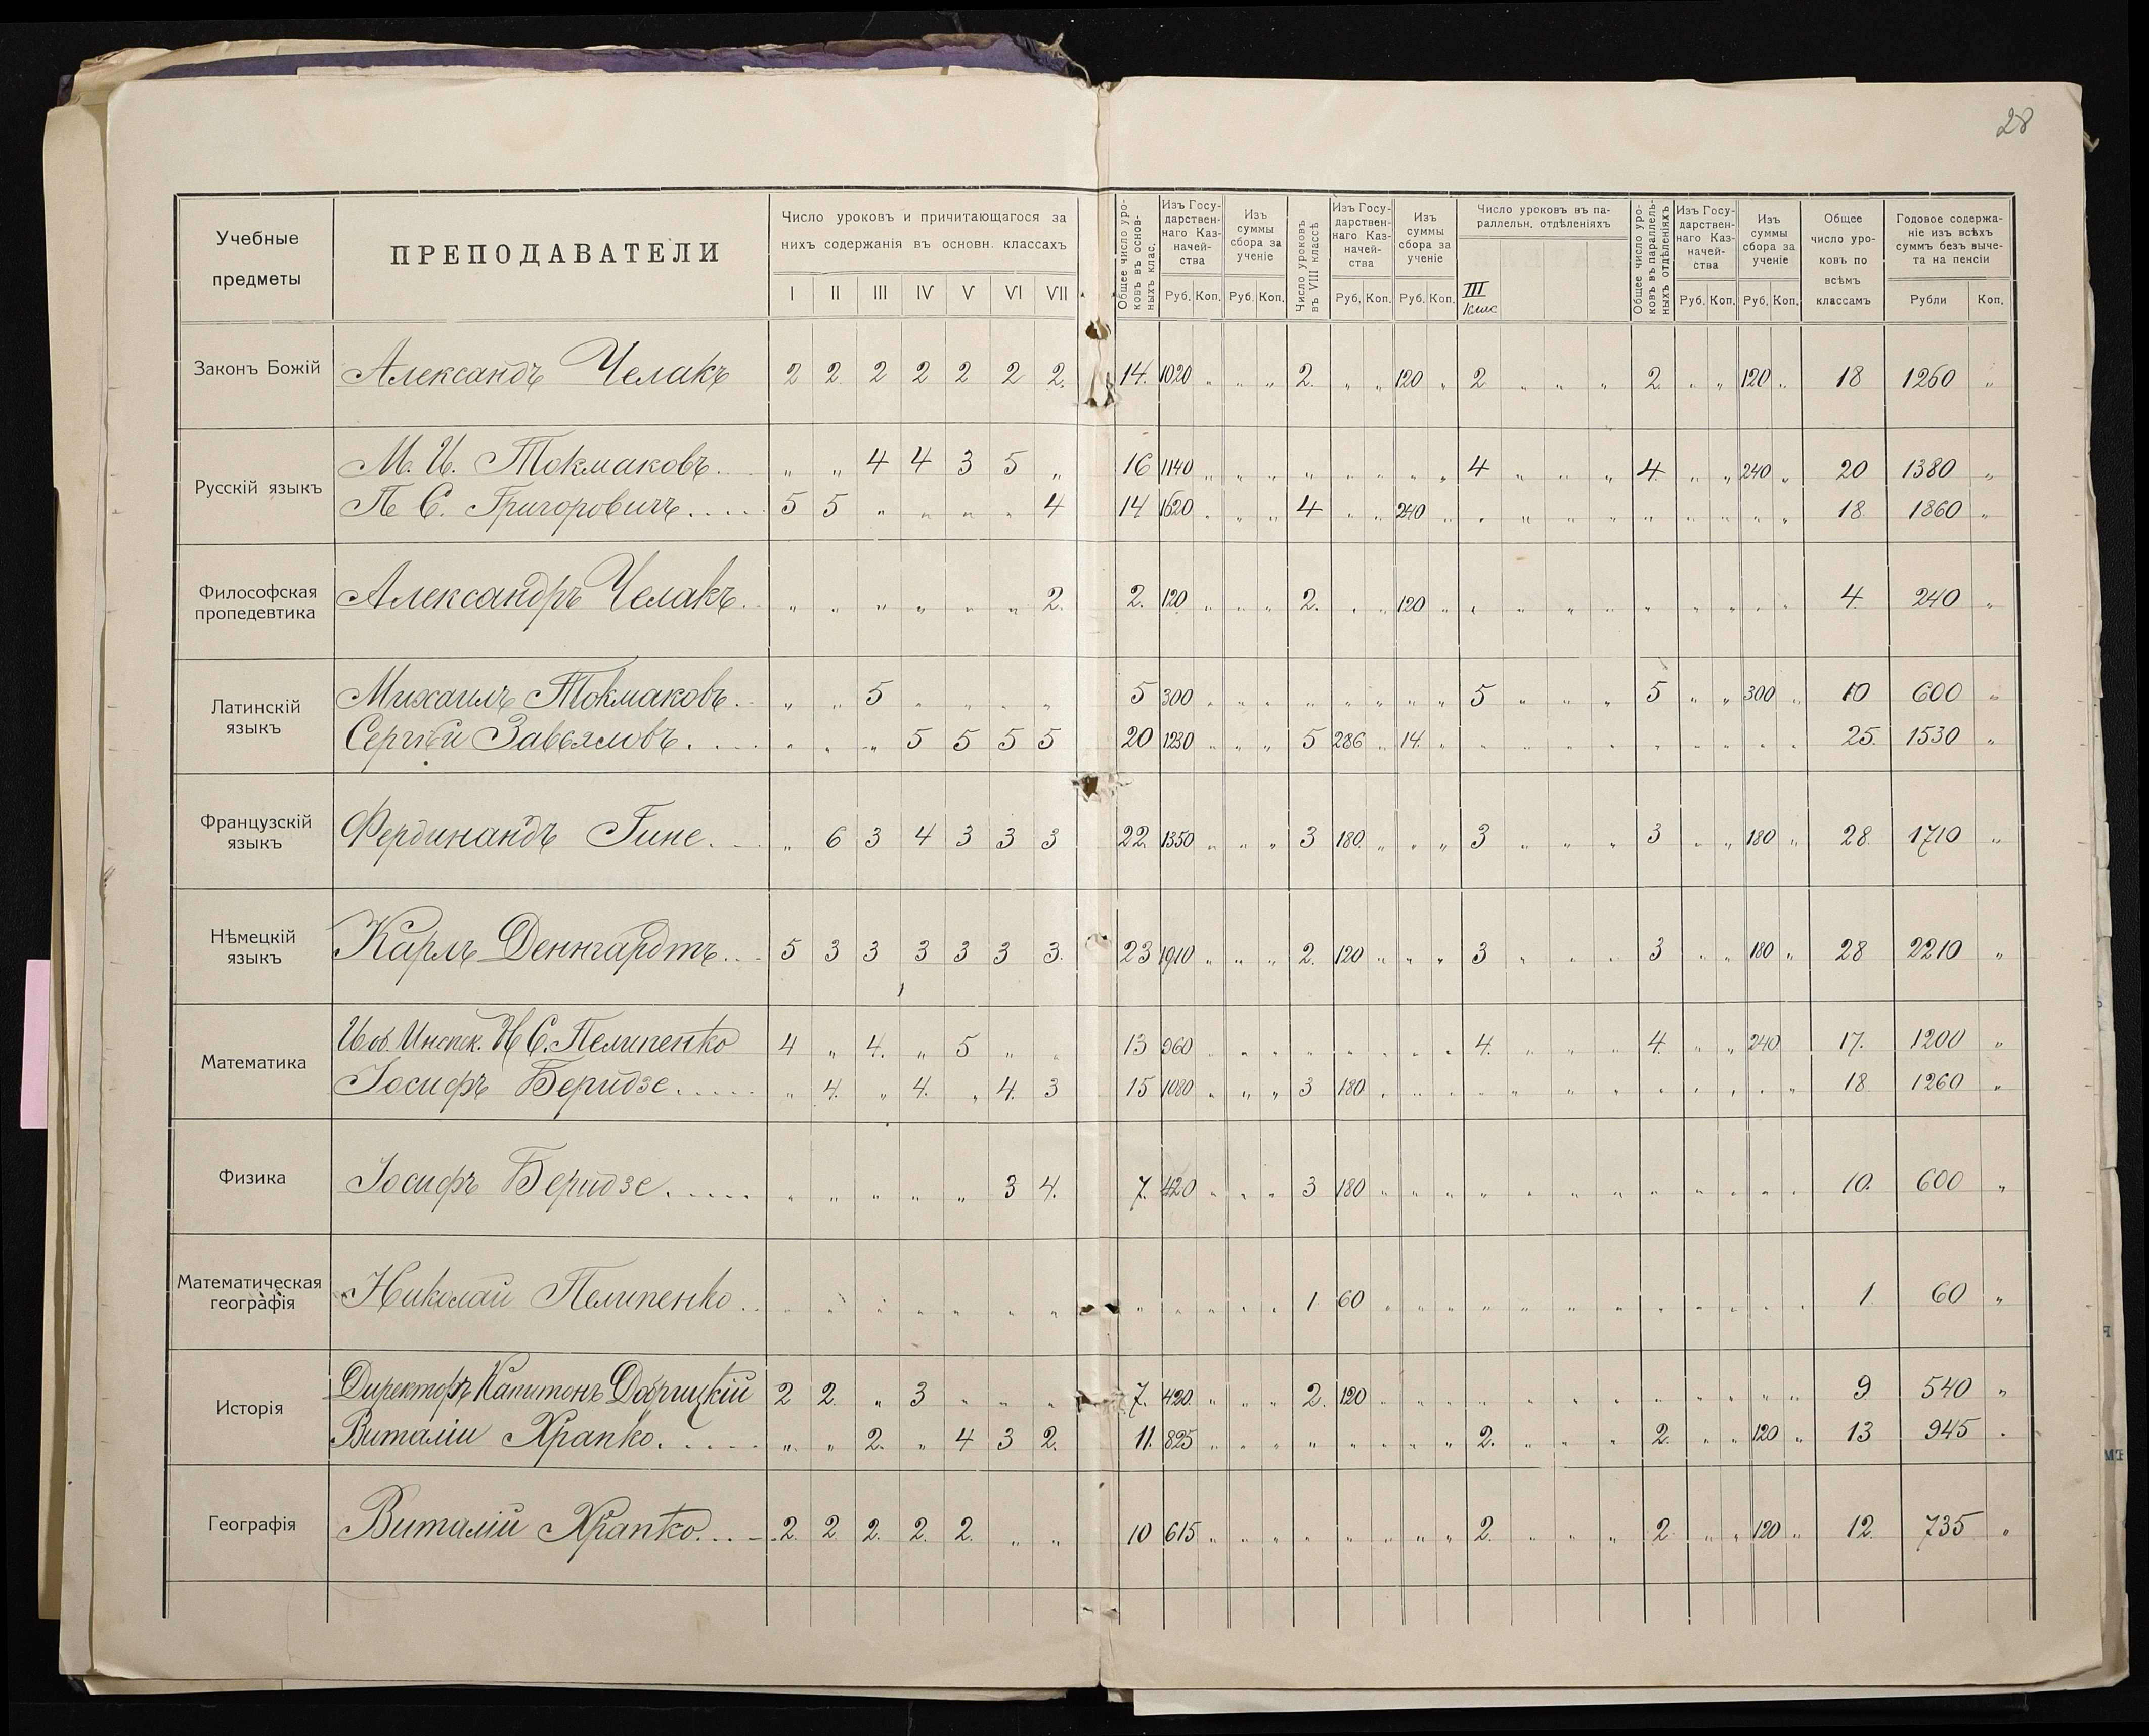 28
Учебные предметы
ПРЕПОДАВАТЕЛИ
Число уроковъ и причитающагося за
нихъ содержанія въ основн. классахъ
I II III IV V VI VII
Общее число уро-
ковъ въ основ-
ныхъ клас.
Изъ Госу-
дарствен-
наго Каз-
начей-
ства
Руб. Коп.
Изъ
суммы
сбора за
ученіе
Руб. Коп.
Число уроковъ
въ VIII классѣ
Изъ Госу-
дарствен-
наго Каз-
начей-
ства
Руб. Коп.
Изъ
суммы
сбора за
ученіе
Руб. Коп.
Число уроковъ въ па-
раллельн. отдѣленіяхъ
III
Клас
Общее число уро-
ковъ въ параллель-
ныхъ отдѣленіяхъ
Изъ Госу-
дарствен-
наго Каз-
начей-
ства
Руб. Коп.
Изъ
суммы
сбора за
ученіе
Руб. Коп.
Общее
число уро-
ковъ по
всѣмъ
классамъ
Годовое содержа-
ніе изъ всѣхъ
суммъ безъ выче-
та на пенсіи
Рубли Коп.
Законъ Божій Александъ Челакъ 2 2. 2 2 2 2 2. 14. 1020 „ „ „ 2. „ „ 120 „ 2 „ „ „ 2 „ „ 120 „ 18 1260 „
Русскій языкъ
М. И. Токмаковъ. „ „ 4 4 3 5 „ 16 1140 „ „ „ „ „ „ „ „ 4 „ „ „ 4. „ „ 240 „ 20 1380 „
П С. Григоровичъ. . . . . 5 5 „ „ „ „ 4 14 1620 „ „ „ 4 „ „ 240 „ „ „ „ „ „ „ „ „ „ 18. 1860 „
Философская
пропедевтика
Александръ Челакъ. „ „ „ „ „ „ 2. 2. 120 „ „ „ 2. „ „ 120 „ „ „ „ „ „ „ „ „ „ 4. 240 „
Латинскій
языкъ
Михаилъ Токмаковъ. „ „ 5 „ „ „ „ 5 300 „ „ „ „ „ „ „ „ 5 „ „ „ 5 „ „ 300 „ 10 600 „
Сергѣй Завьяловъ. . . . „ „ „ 5 5 5 5 20 1230 „ „ „ 5 286 „ 14. „ „ „ „ „ „ „ „ „ „ 25. 1530 „
Французскій
языкъ
Фердинандъ Гине. „ 6 3 4 3 3 3 22. 1350 „ „ „ 3 180. „ „ „ 3 „ „ „ 3 „ „ 180 „ 28 1710 „
Нѣмецкій
языкъ
Карлъ Деннгардтъ. . . 5 3 3 3 3 3 3. 23 1910 „ „ „ 2. 120 „ „ „ 3 „ „ „ 3 „ „ 180 „ 28 2210 „
Математика
Инспек. Н С. Пелипенко 4 „ 4. „ 5 „ „ 13 960 „ „ „ „ „ „ „ „ 4. „ „ „ 4. „ „ 240 17. 1200 „
Іосифъ Беридзе. . . . . „ 4. „ 4. „ 4. 3 15 1080 „ „ „ 3 180 „ „ „ „ „ „ „ „ „ „ „ „ 18. 1260 „
Физика Іосифъ Беридзе. . . . . „ „ „ „ „ 3 4. 7. 420 „ „ „ 3 180 „ „ „ „ „ „ „ „ „ „ „ „ 10. 600 „
Математическая
географія
Николай Пелипенко. . „ „ „ „ „ „ „ „ „ „ „ „ 1. 60 „ „ „ „ „ „ „ „ „ „ „ „ 1. 60 „
Исторія
Директоръ Капитонъ 2 2. „ 3 „ „ „ 7. 420. „ „ „ 2. 120 „ „ „ „ „ „ „ „ „ „ „ „ 9. 540 „
Виталій Храпко. . . . . „ „ 2. „ 4 3 2. 11. 825 „ „ „ „ „ „ „ „ 2. „ „ „ 2. „ „ 120 „ 13 945 „
Географія Виталій Храпко. . . 2. 2 2. 2. 2. „ „ 10 615 „ „ „ „ „ „ „ „ 2. „ „ „ 2 „ „ 120 „ 12. 735 „